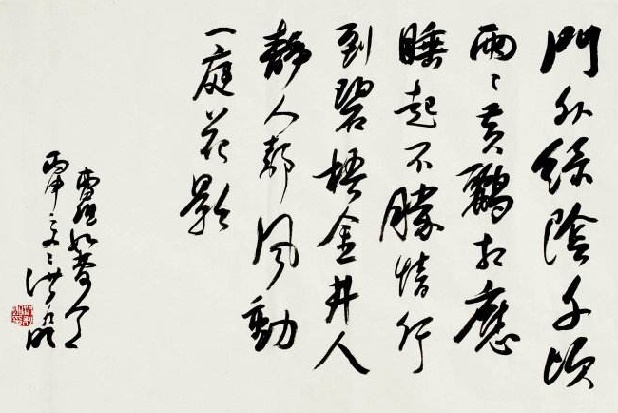 門外綠陰千頃
兩〻黃鸝相應
睡起不勝情行
到碧梧金井人
靜人靜風動
一庭花影
曹組如夢令
丙申洪亮